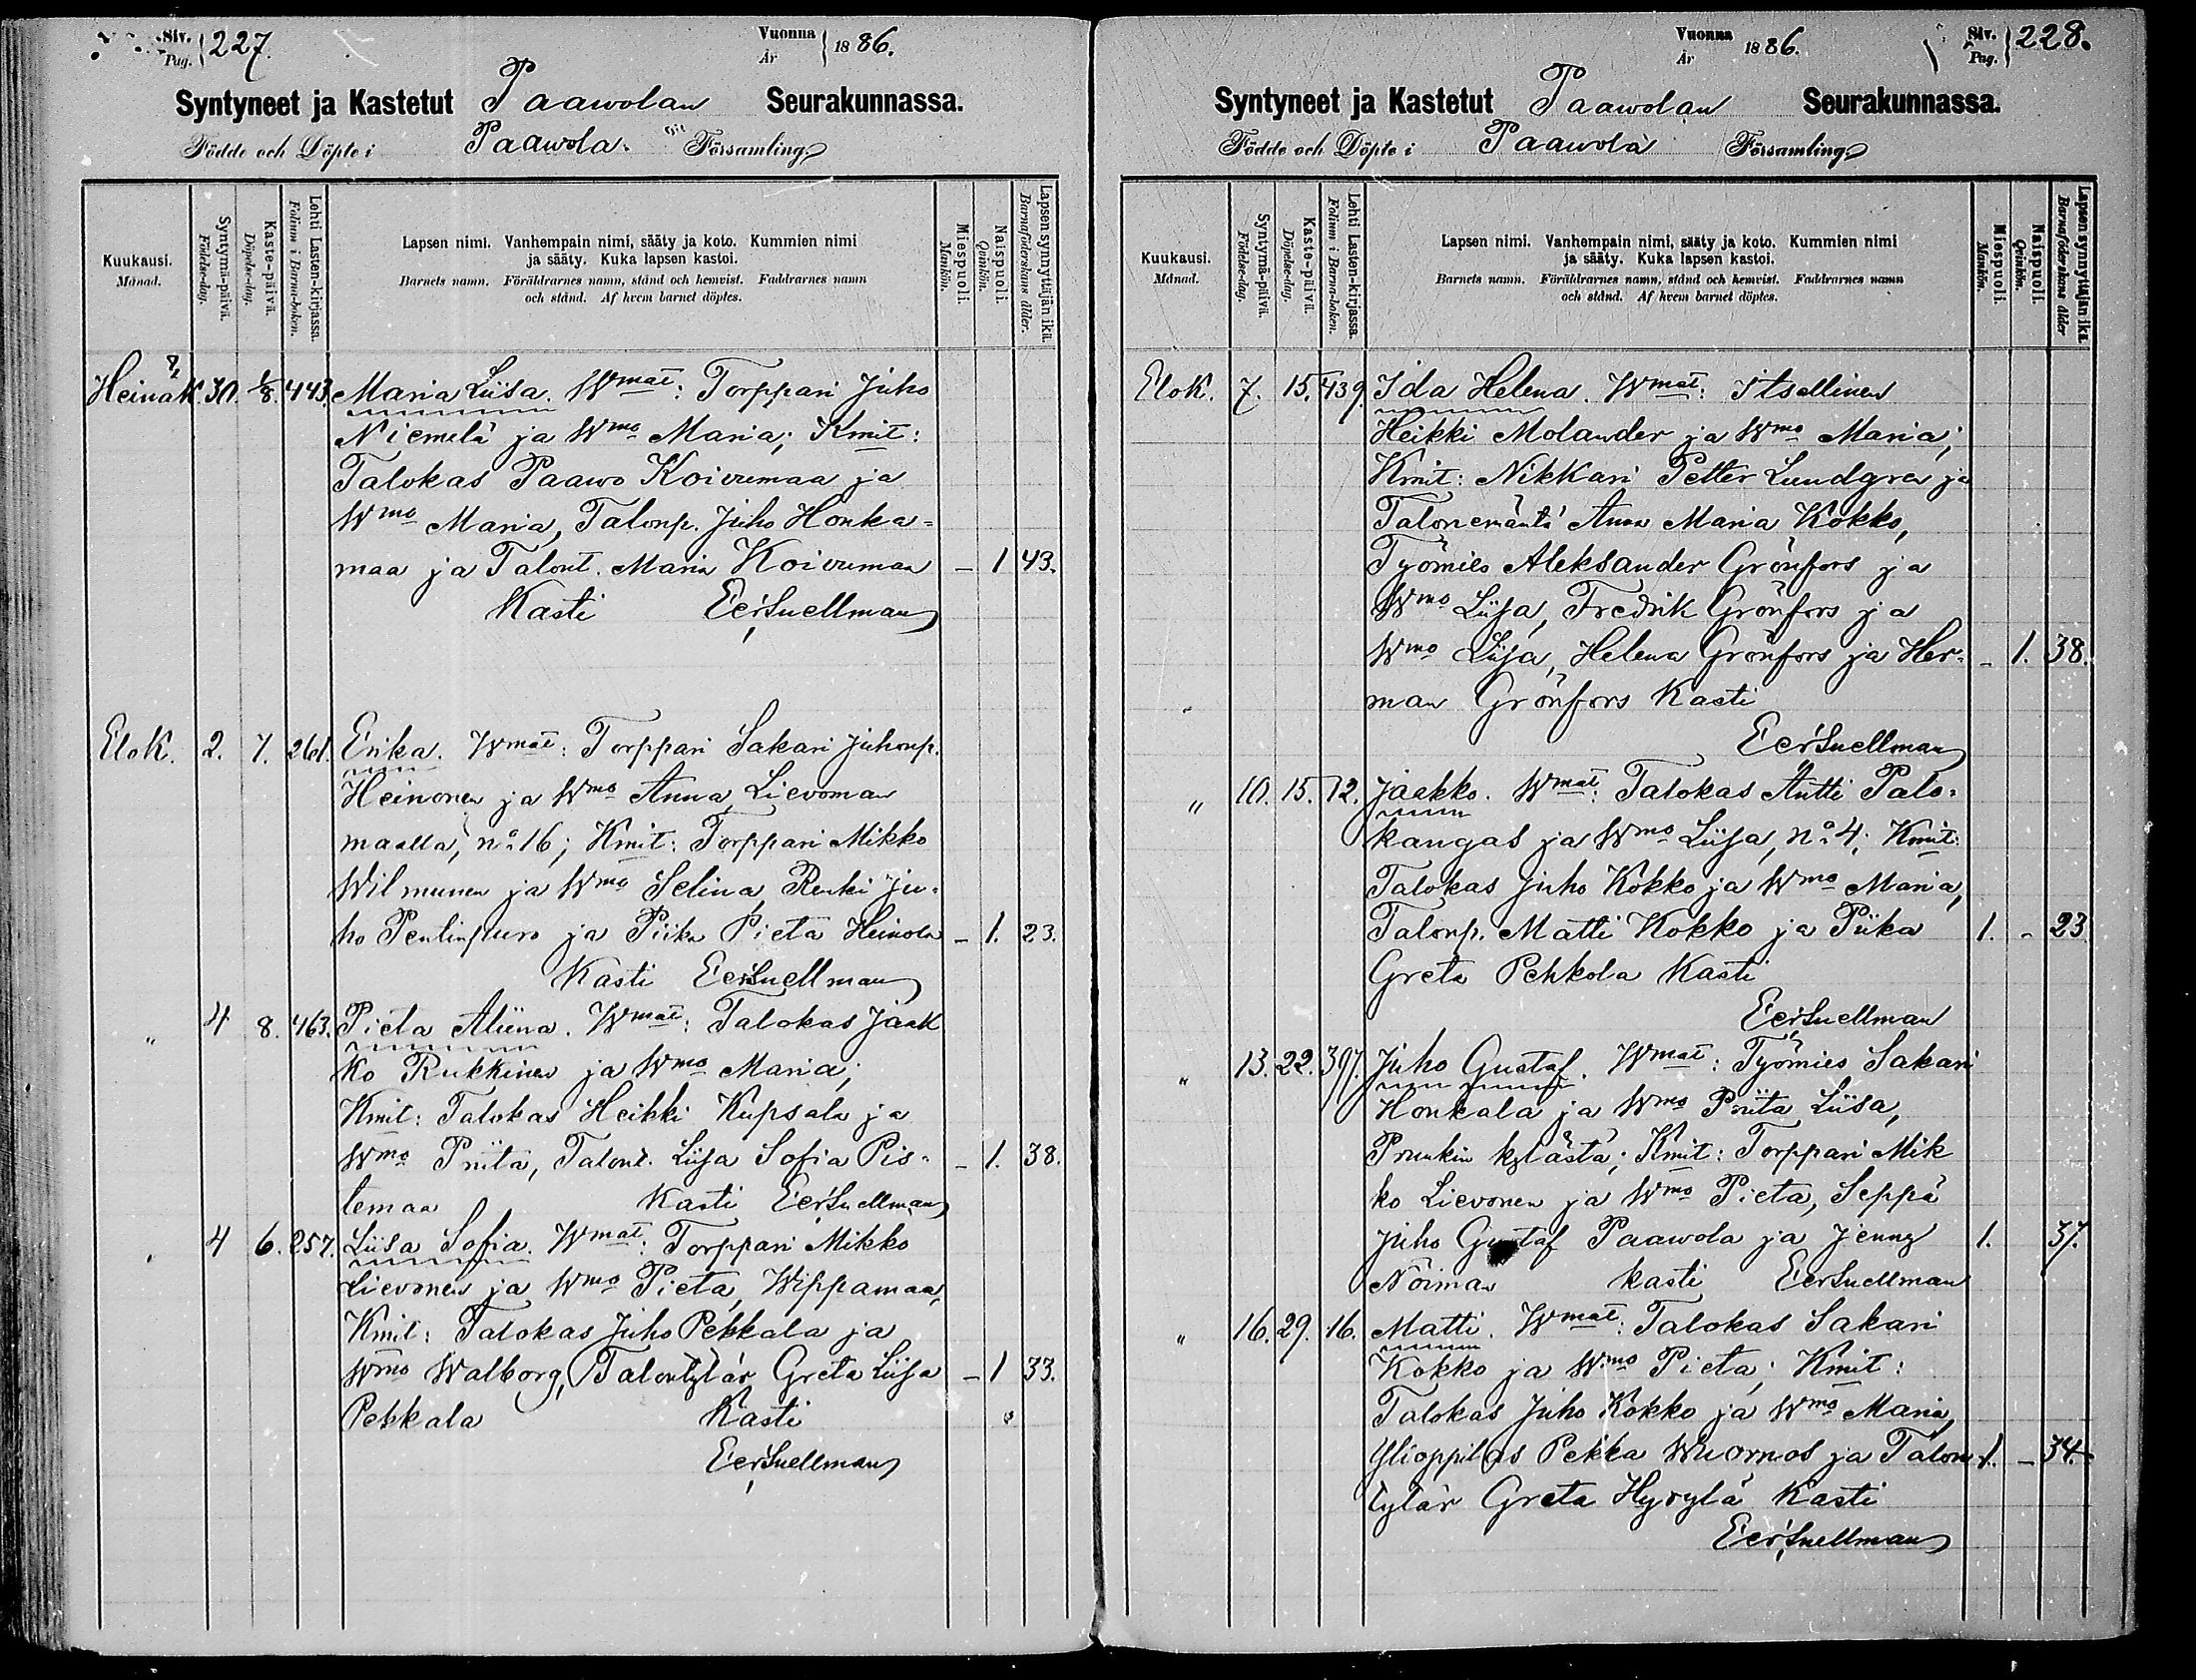 Siv. Pag. 227.
Vuonna År 1886.
Syntyneet ja Kastetut Paawolan Seurakunnassa.
Födde och Döpte i Paawola. Församling
Kuukausi. Månad.
Syntymä-päivä. Födelse-dag.
Kaste-päivä. Döpelse-dag.
Lehti Lasten-kirjassa. Folium i Barna-boken.
Lapsen nimi. Vanhempain nimi, sääty ja koto. Kummien nimi
ja sääty. Kuka lapsen kastoi.
Barnets namn. Föräldrarnes namn, stånd och hemvist. Faddrarnes namn
och stånd. Af hvem barnet döptes.
Miespuoli. Mankön.
Naispuoli. Qvinkön.
Lapsen synnyttäjän ikä. Barnaföderskans ålder.
Heinäk. 30. 1/8. 443. Maria Liisa. Wmat: Torppari Juho
Niemelä ja Wmo Maria; Kmit:
Talokas Paawo Koivumaa ja
Wmo Maria, Talonp. Juho Honka=
maa ja Talont. Maria Koivumaa – 1 43.
Kasti EerSnellman
Elok. 2. 7. 261. Erika. Wmat: Torppari Sakari Juhonp.
Heinonen ja Wmo Anna Lievoman
maalla, no 16; Kmit: Torppari Mikko
Wilmunen ja Wmo Selina, Renki Ju=
ho Pentinpuro ja Piika Pieta Heinola – 1. 23.
Kasti EerSnellman
" 4 8. 463. Pieta Aliina. Wmat: Talokas Jaak
ko Rukkinen ja Wmo Maria;
Kmit: Talokas Heikki Kupsala ja
Wmo Priita, Talont. Liisa Sofia Pis= – 1. 38.
temaa Kasti EerSnellman
" 4 6. 257. Liisa Sofia. Wmat: Torppari Mikko
Lievonen ja Wmo Pieta, Wippamaa,
Kmit: Talokas Juho Pekkala ja
Wmo Walborg, Talontytär Greta Liisa – 1 33.
Pekkala Kasti
EerSnellman
Vuonna År 1886.
Siv. Pag. 228.
Syntyneet ja Kastetut Paawolan Seurakunnassa.
Födde och Döpte i Paawola Församling
Kuukausi. Månad.
Syntymä-päivä. Födelse-dag.
Kaste-päivä. Döpelse-dag.
Lehti Lasten-kirjassa. Folium i Barna-boken.
Lapsen nimi. Vanhempain nimi, sääty ja koto. Kummien nimi
ja sääty. Kuka lapsen kastoi.
Barnets namn. Föräldrarnes namn, stånd och hemvist. Faddrarnes namn
och stånd. Af hvem barnet döptes.
Miespuoli. Mankön.
Naispuoli. Qvinkön.
Lapsen synnyttäjän ikä. Barnaföderskans ålder
Elok. 7. 15. 439. Ida Helena. Wmat: Itsellinen
Heikki Molander ja Wmo Maria;
Kmit: Nikkari Petter Lundgren ja
Talonemäntä Anna Maria Kokko,
Työmies Aleksander Grönfors ja
Wmo Liisa, Fredrik Grönfors ja
Wmo Liisa, Helena Grönfors ja Her= – 1. 38.
man Grönfors Kasti
EerSnellman
" 10. 15. 12. Jaakko. Wmat: Talokas Antti Palo=
kangas ja Wmo Liisa, no 4; Kmit:
Talokas Juho Kokko ja Wmo Maria,
Talonp. Matti Kokko ja Piika 1. – 23
Greta Pehkola Kasti
EerSnellman
" 13. 22. 397. Juho Gustaf. Wmat: Työmies Sakari
Honkala ja Wmo Priita Liisa,
Prunkin kylästä; Kmit: Torppari Mik
ko Lievonen ja Wmo Pieta, Seppä
Juho Gustaf Paawola ja Jenny 1. 37.
Nöiman kasti EerSnellman
" 16. 29. 16. Matti. Wmat: Talokas Sakari
Kokko ja Wmo Pieta; Kmit:
Talokas Juho Kokko ja Wmo Maria,
Ylioppilas Pekka Wuornos ja Talon 1. – 34.
tytär Greta Hyvylä Kasti
EerSnellman